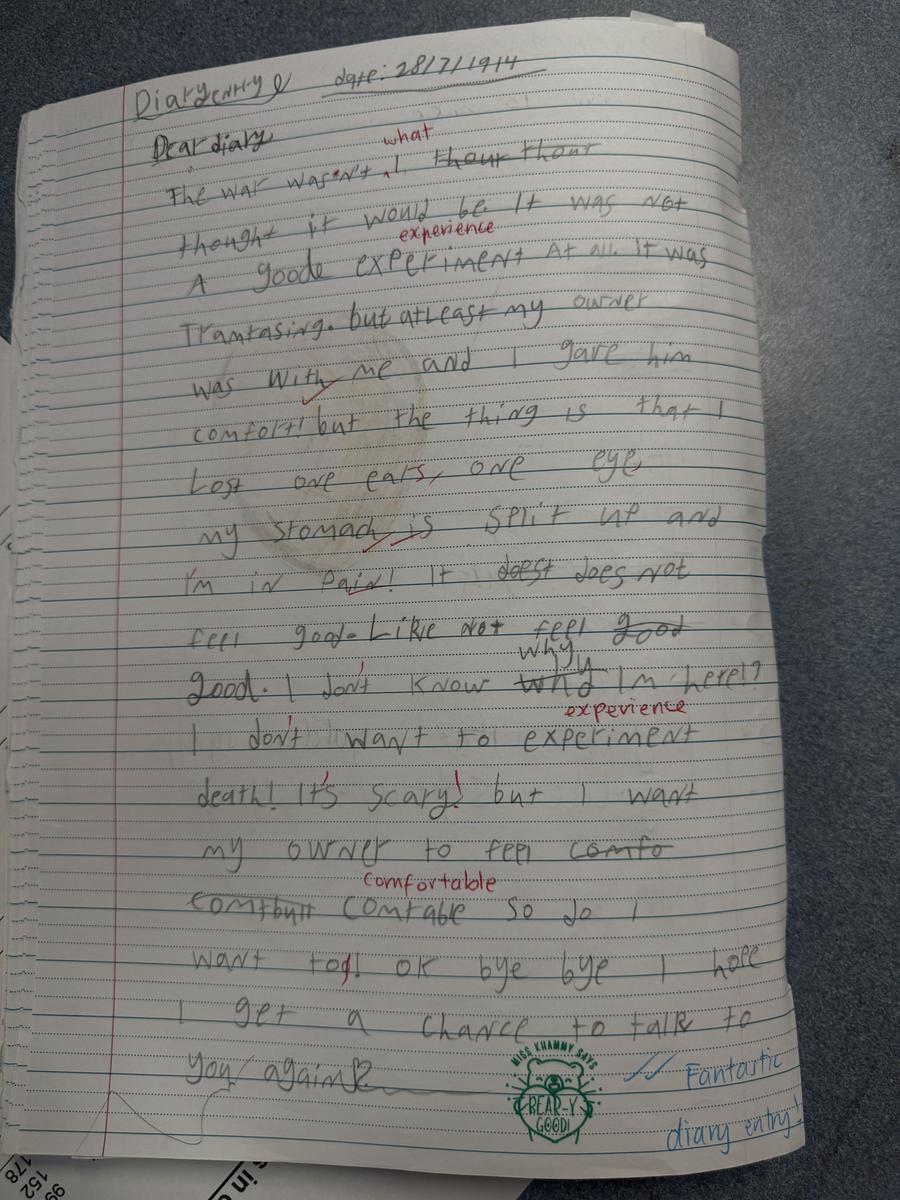 Diary entry date: 28/7/1914
Dear diary
what
The war wasn't I thour thour
thought it would be It was not
experience
A goode experiment At all It was
Tramtasing. but atleast my owner
was with me and I gave him
comfort! but the thing is that I
Lost one ears, one eye,
my stomach is split up and
I'm in pain! It doest does not
feel good. Like not feel good
why
good. I don't know whd I'm here!?
experience
I don't want to experiment
death! It's scary! but I want
my owner to feel comfo
comfortable
comtable so do I
want to! ok bye bye I hope
I get a chance to talk to
you again!?
MISS KHAMMY SAYS
BEAR-Y
GOOD!
Fantastic
diary entry!
in
178
152